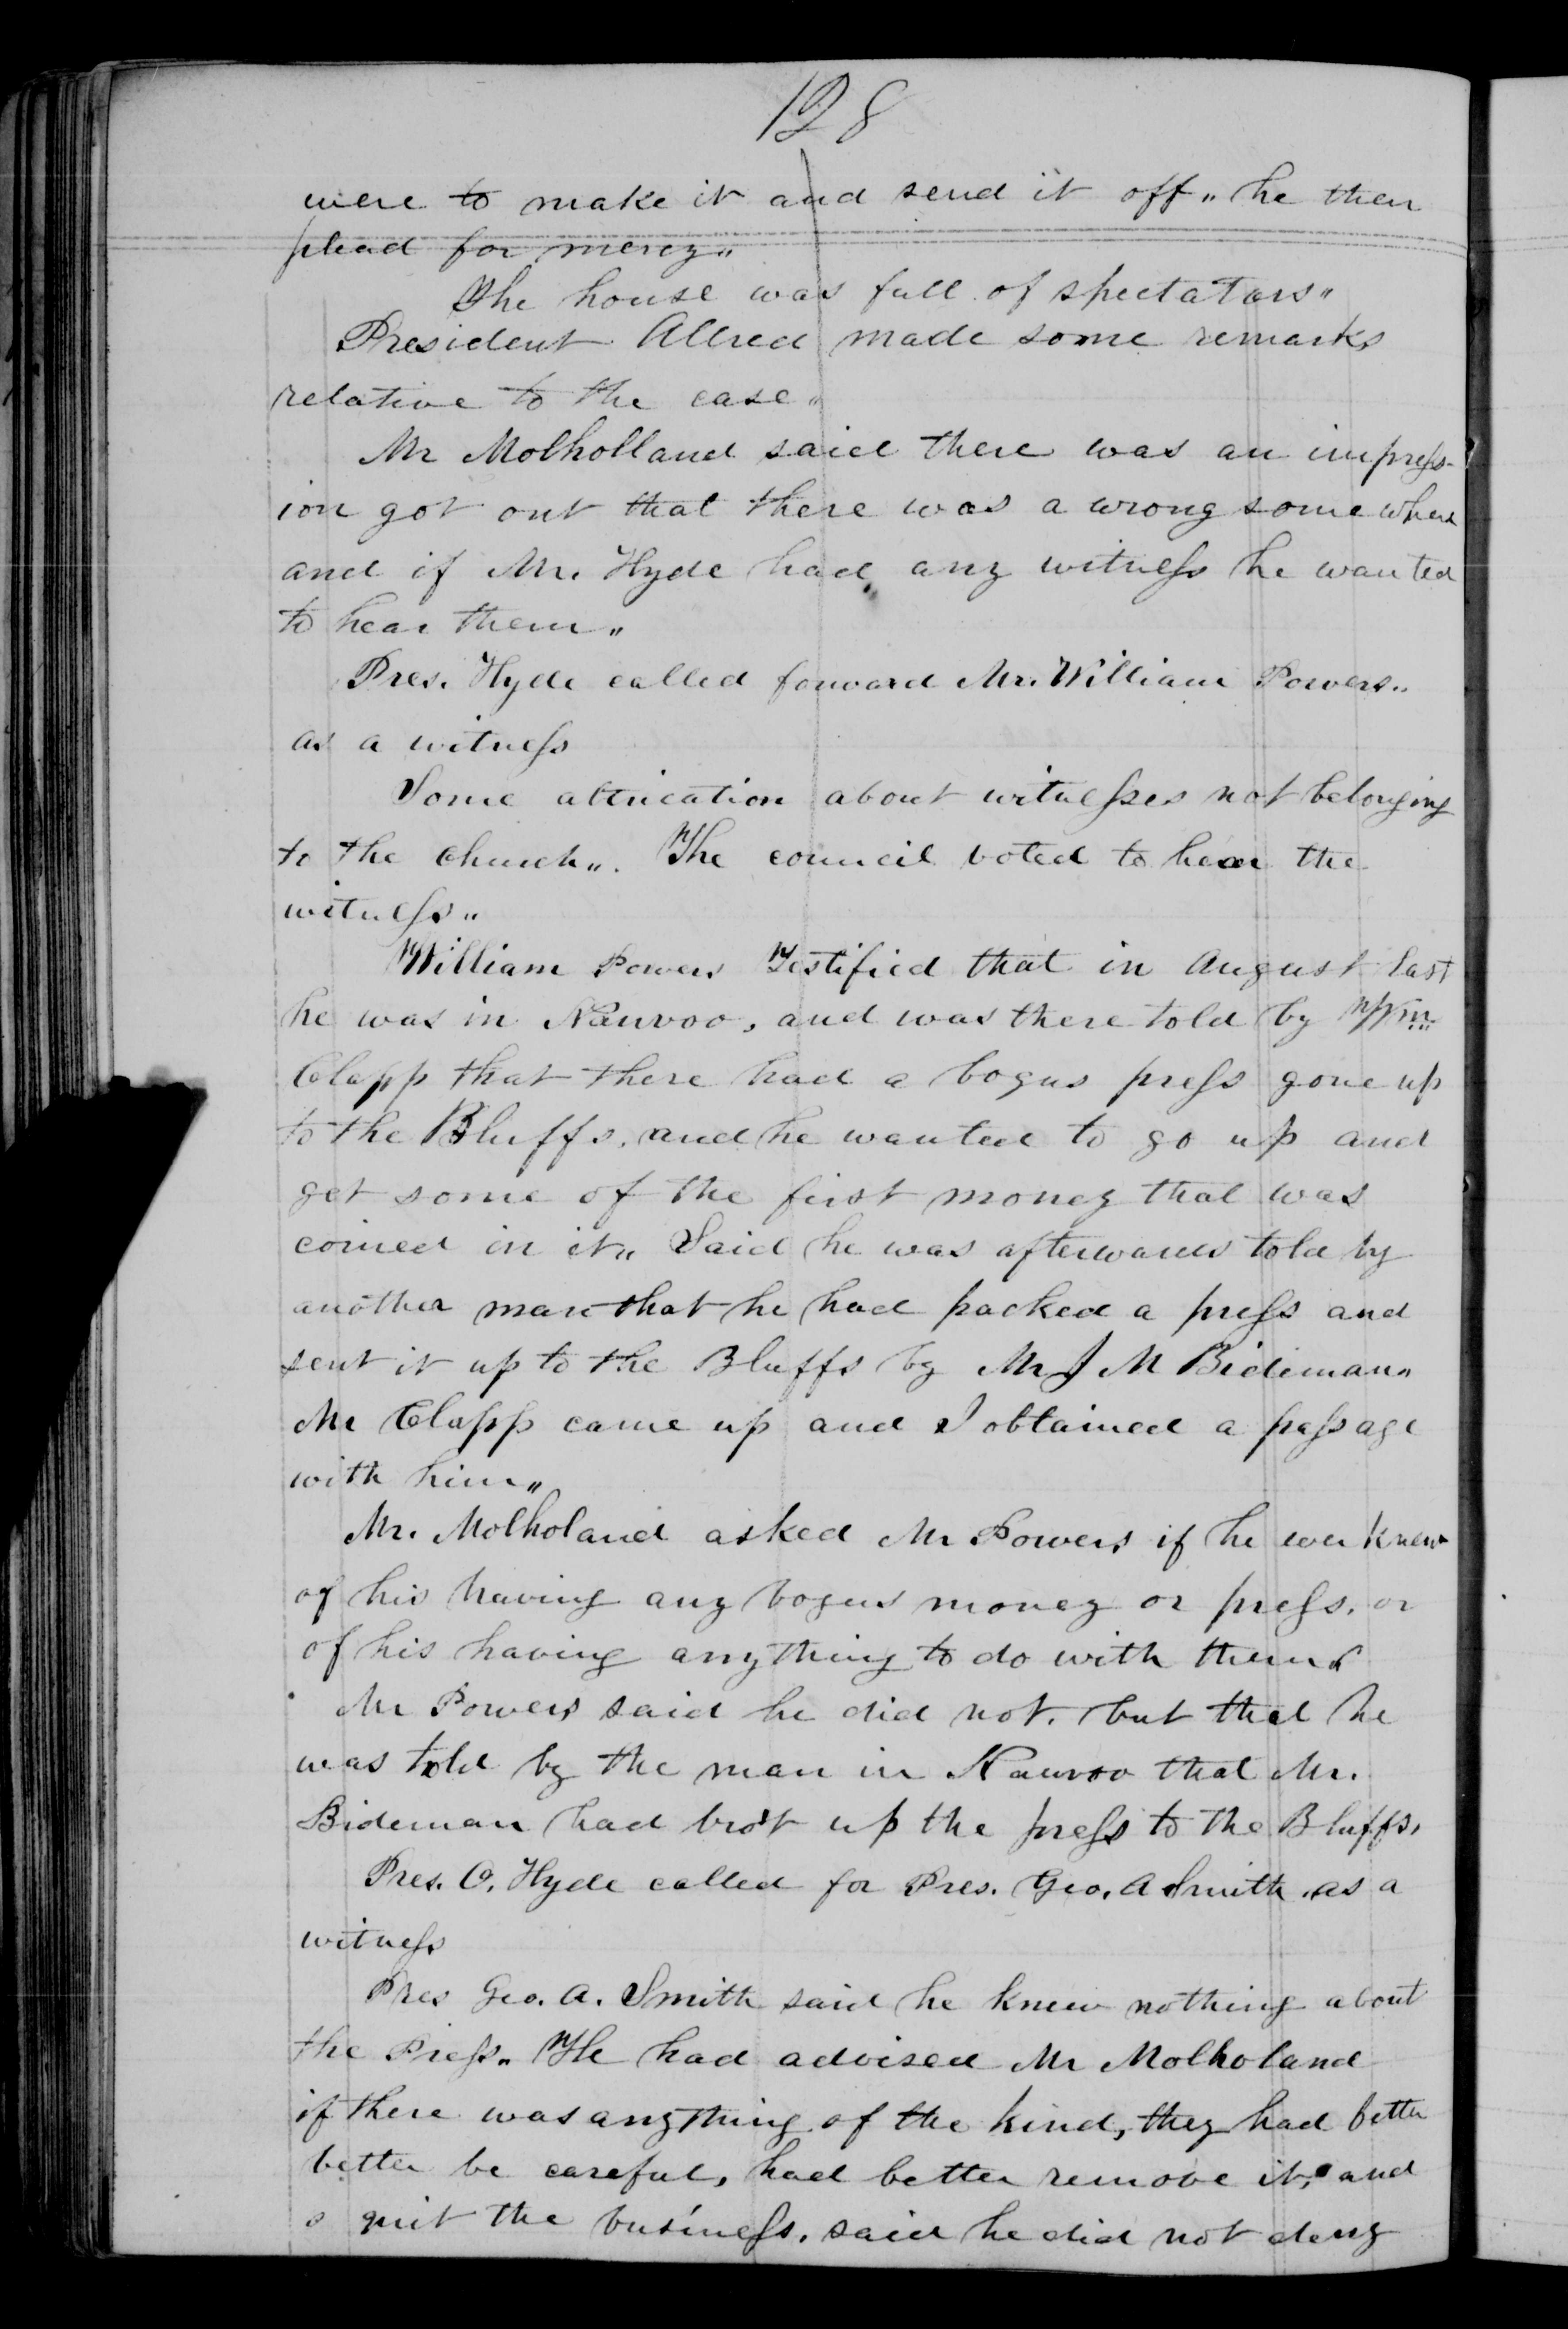 128
were to make it and send it off„ he then
plead for mercy„
The house was full of spectators„
President Allred made some remarks
relative to the case„
Mr Molholland said there was an impress-
ion got out that there was a wrong some where
and if Mr. Hyde had any witness he wanted
to hear them„
Pres. Hyde called forward Mr. William Powers„
as a witness
Some altrication about witnesses not belonging
to the church„. The council voted to hear the
witness„
William Powers Testified that in August last
he was in Nauvoo, and was there told by Wm
Clapp that there had a bogus press gone up
to the Bluffs, and he wanted to go up and
get some of the first money that was
coined in it„ Said he was afterwards told by
another man that he had packed a press and
sent it up to the Bluffs by Mr J M Bideman„
Mr Clapp came up and I obtained a passage
with him„
Mr. Molholand asked Mr Powers if he ever knew
of his having any bogus money or press, or
of his having anything to do with them
Mr Powers said he did not, but that he
was told by the man in Nauvoo that Mr.
Bideman had bro't up the press to the Bluffs,
Pres. O. Hyde called for Pres. Geo. A Smith as a
witness
Pres Geo. A. Smith said he knew nothing about
the Press„ He had advised Mr Molholand
if there was anything of the kind, they had better
better be careful, had better remove it, and
quit the business, said he did not deny